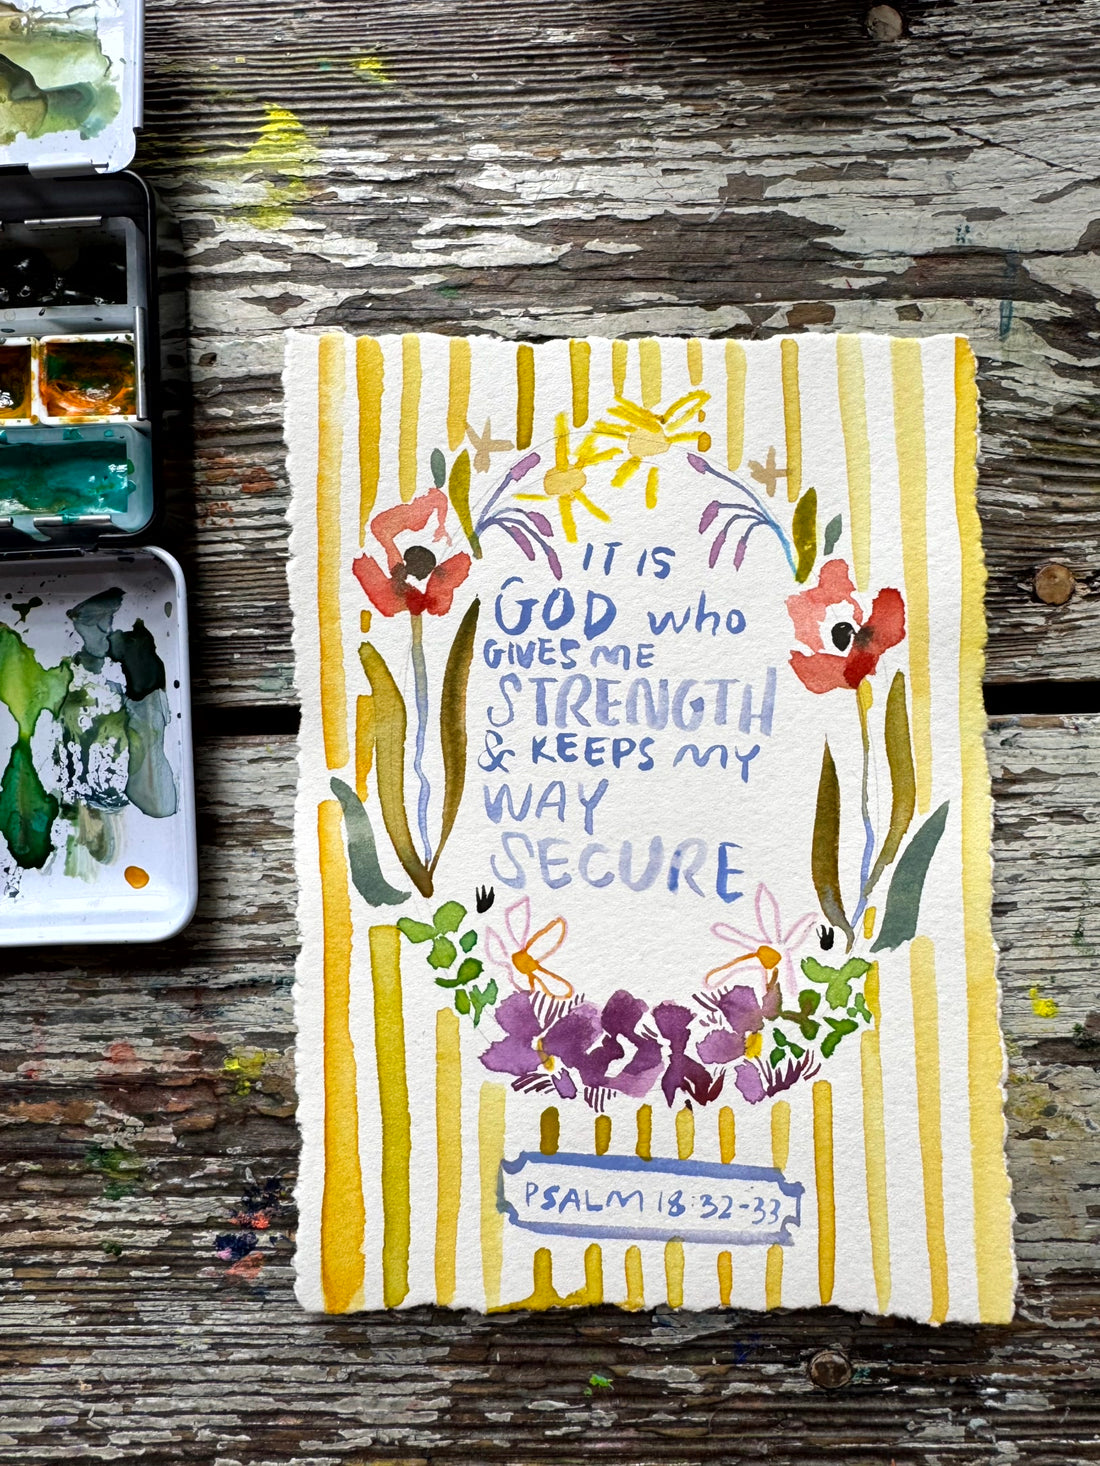 IT IS
GOD who
GIVES ME
STRENGTH
& KEEPS MY
WAY
SECURE
PSALM 18:32-33